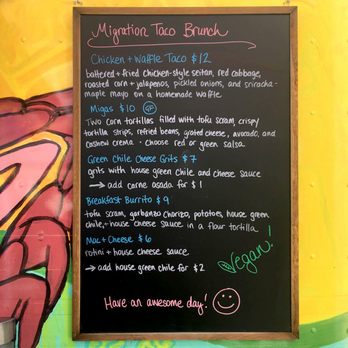 Migration Taco Brunch
Chicken + Waffle Taco $12
battered + fried chicken-style seitan, red cabbage,
roasted corn + jalapeños, pickled onions, and sriracha-
maple mayo on a homemade waffle
Migas $10 GF
Two corn tortillas filled with tofu scram, crispy
tortilla strips, refried beans, grated cheese, avocado, and
cashew crema · choose red or green salsa
Green Chile Cheese Grits $7
grits with house green chile and cheese sauce
→ add carne asada for $1
Breakfast Burrito $9
tofu scram, garbanzo chorizo, potatoes, house green
chile, + house cheese sauce in a flour tortilla
Mac + Cheese $6
rotini + house cheese sauce
→ add house green chile for $2
Vegan!
Have an awesome day!